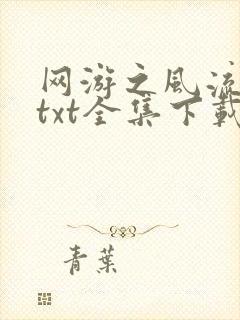 网游之风流
txt全集下载
青葉